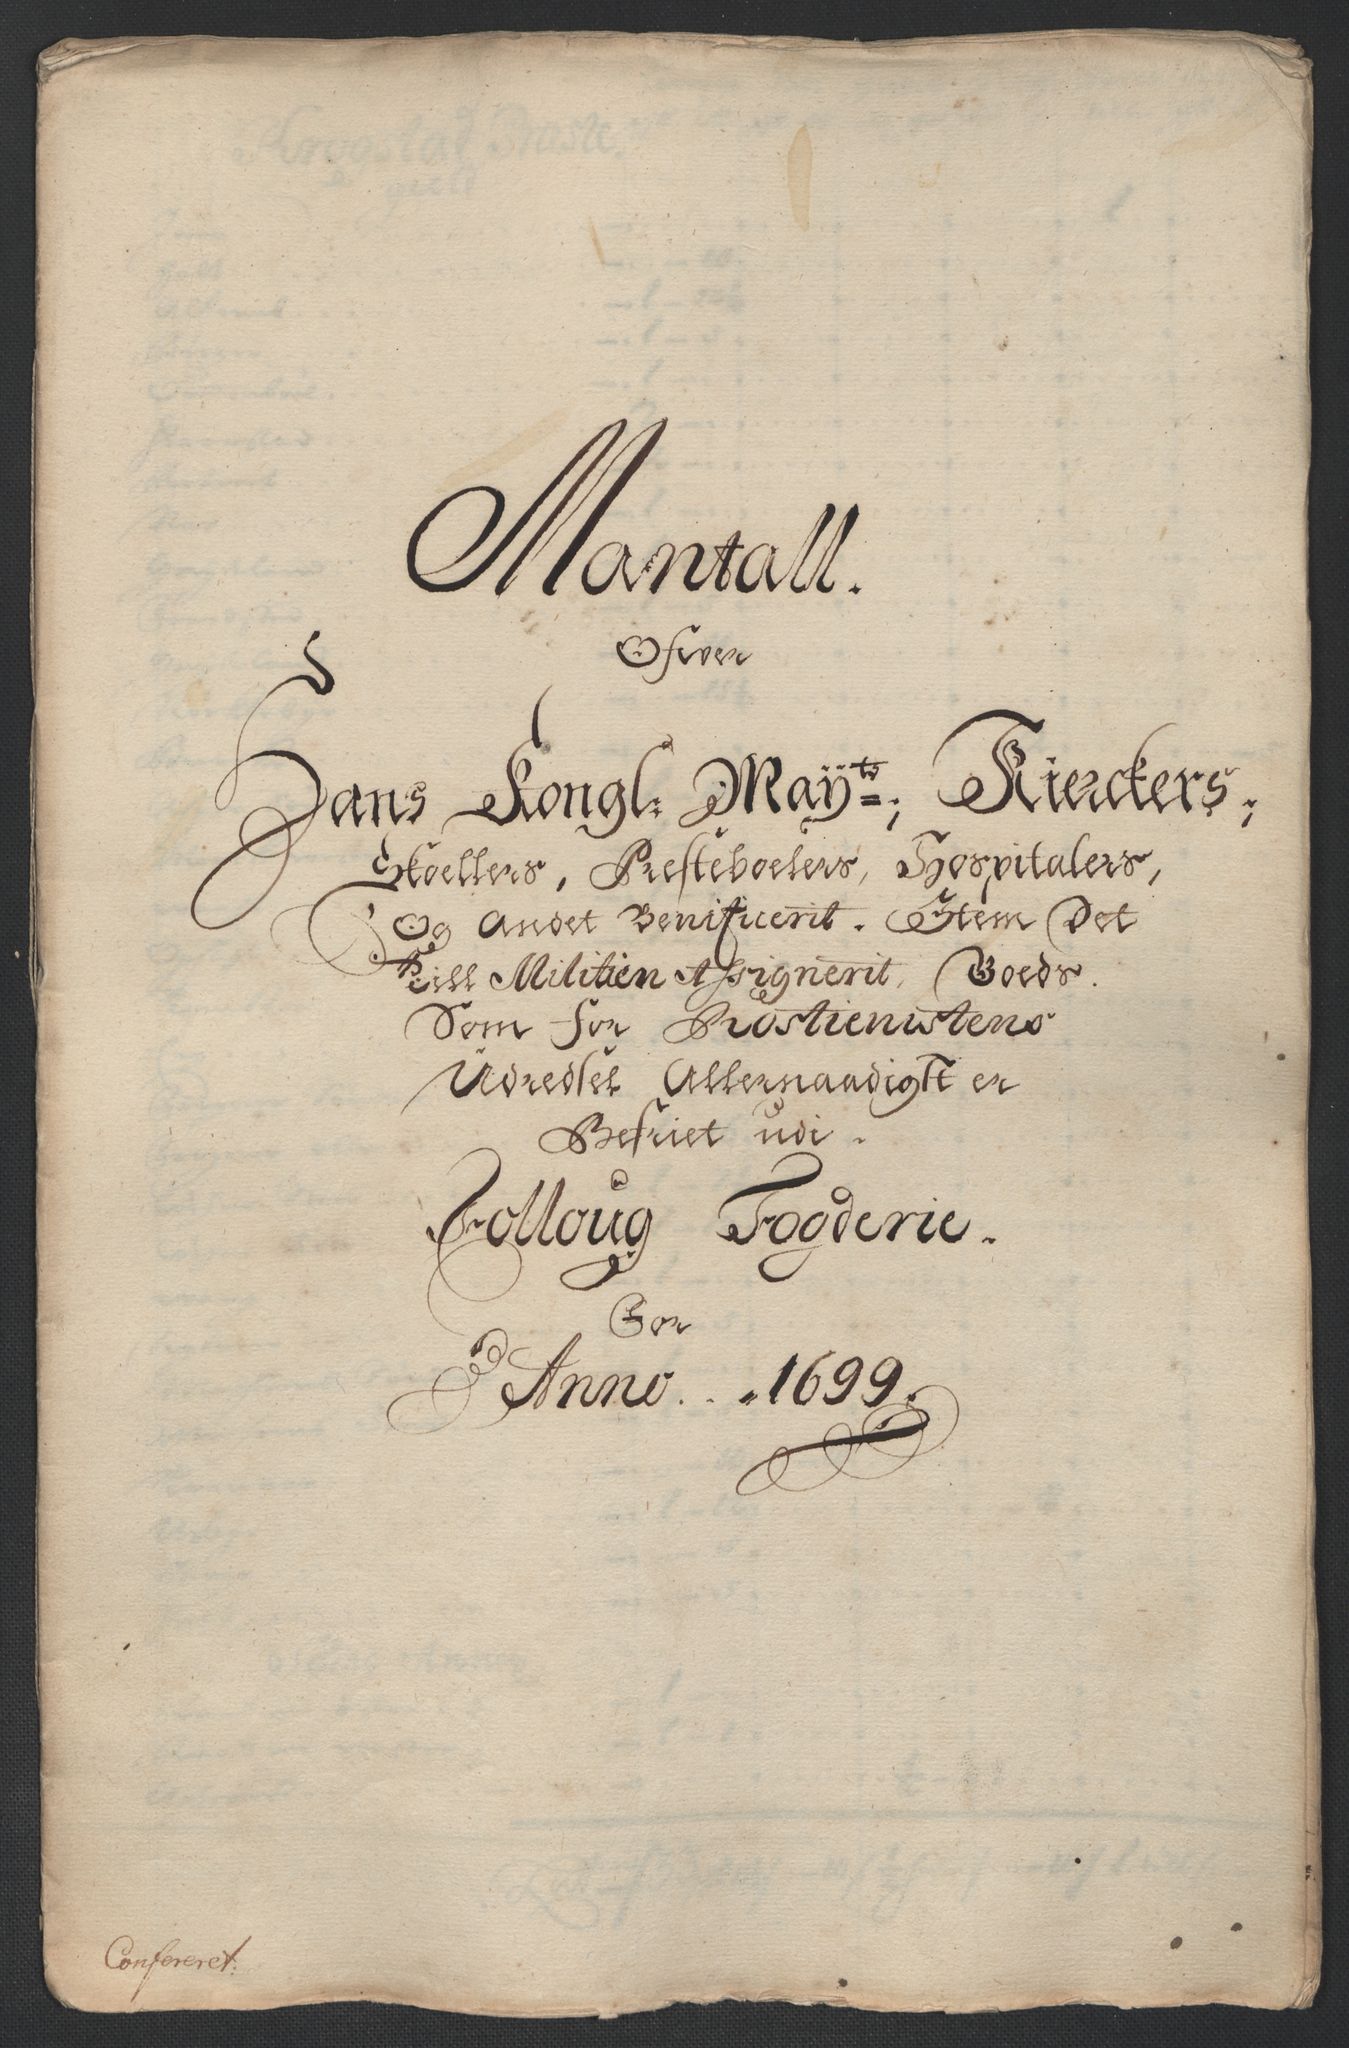 Mantall.
Ofver
Hans Kongl: Mayts; Kierckers;
Skoellers, Presteboelers, Hospitalers,
Og Andet Benificerit. Item Det
till Militien Assignerit, Goeds.
Som for Rostienistens
Udredsel Allernaadigst er
Befriet udi.
Folloug Fogderie.
For
Anno. . 1699.
Confereret.